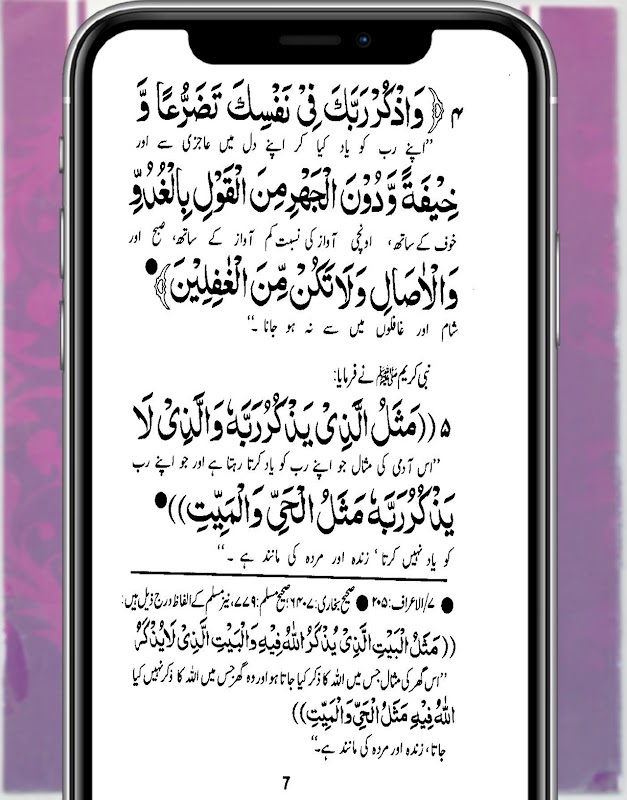 ۴ ﴿وَاذْكُرْ رَبَّكَ فِىْ نَفْسِكَ تَضَرُّعًا وَّ
”اپنے رب کو یاد کیا کر اپنے دل میں عاجزی سے اور
خِيْفَةً وَّدُوْنَ الْجَهْرِ مِنَ الْقَوْلِ بِالْغُدُوِّ
خوف کے ساتھ، اونچی آواز کی نسبت کم آواز کے ساتھ، صبح اور
وَالْاٰصَالِ وَلَا تَكُنْ مِّنَ الْغٰفِلِيْنَ﴾●
شام اور غافلوں میں سے نہ ہو جانا ۔“
نبی کریم ﷺ نے فرمایا:
۵ ((مَثَلُ الَّذِىْ يَذْكُرُ رَبَّهٗ وَالَّذِىْ لَا
”اس آدمی کی مثال جو اپنے رب کو یاد کرتا رہتا ہے اور جو اپنے رب
يَذْكُرُ رَبَّهٗ مَثَلُ الْحَىِّ وَالْمَيِّتِ))●
کو یاد نہیں کرتا، زندہ اور مردہ کی مانند ہے ۔“
● ۷/الاعراف:۲۰۵ ● صحیح بخاری:۶۴۰۷؛ صحیح مسلم:۷۷۹، نیز مسلم کے الفاظ درج ذیل ہیں:
((مَثَلُ الْبَيْتِ الَّذِىْ يُذْكَرُ اللّٰهُ فِيْهِ وَالْبَيْتِ الَّذِىْ لَا يُذْكَرُ
”اس گھر کی مثال جس میں اللہ کا ذکر کیا جاتا ہو اور وہ گھر جس میں اللہ کا ذکر نہیں کیا
اللّٰهُ فِيْهِ مَثَلُ الْحَىِّ وَالْمَيِّتِ))
جاتا، زندہ اور مردہ کی مانند ہے۔“
7